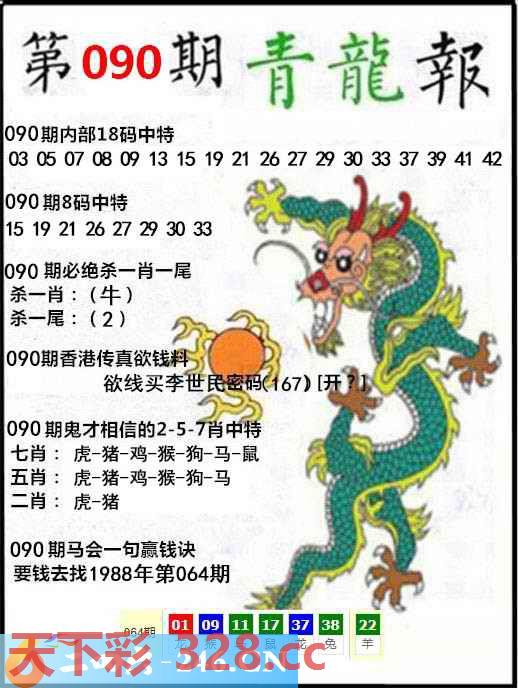 第090期 青龍報
090期内部18码中特
03 05 07 08 09 13 15 19 21 26 27 29 30 33 37 39 41 42
090期8码中特
15 19 21 26 27 29 30 33
090 期必绝杀一肖一尾
杀一肖：（牛）
杀一尾：（2）
090期香港传真欲钱料
欲线买李世民密码(167) [开？]
090期鬼才相信的2-5-7肖中特
七肖： 虎-猪-鸡-猴-狗-马-鼠
五肖： 虎-猪-鸡-猴-狗-马
二肖： 虎-猪
090期马会一句赢钱诀
要钱去找1988年第064期
064期 01 09 11 17 37 38 22
龙 猴 鼠 龙 兔 羊
天下彩-328.cc